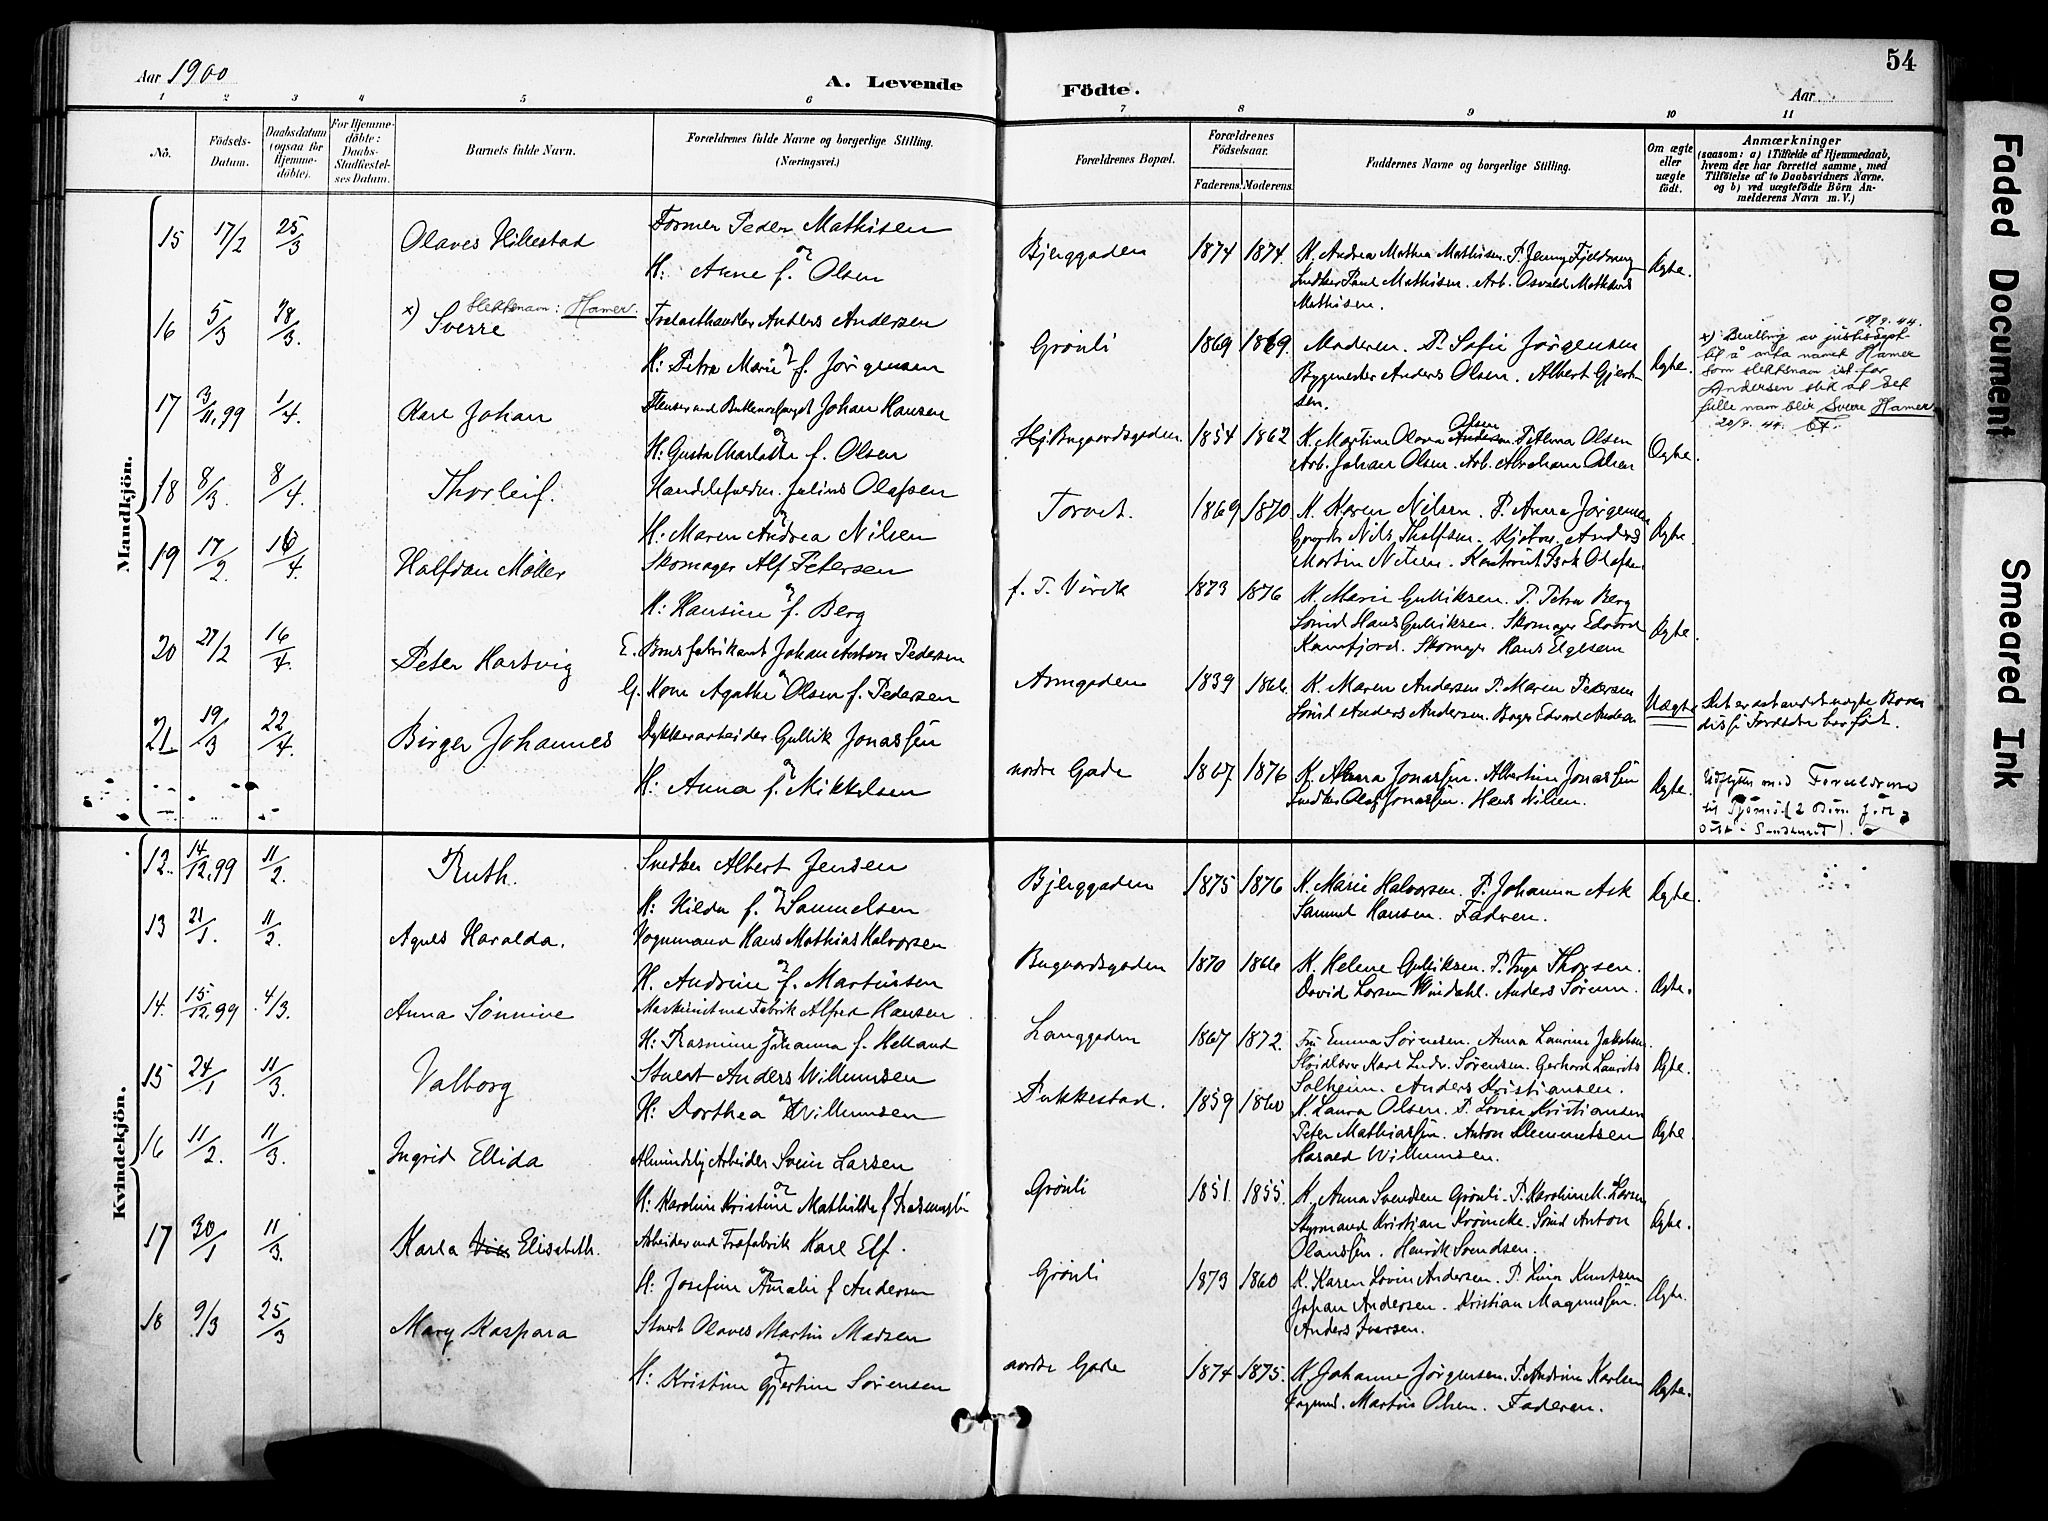 54
Aar 1900
A. Levende Födte.
Aar
1 2 3 4 5 6 7 8 9 10 11
Nö.
Födsels-Datum.
Daabsdatum (ogsaa for Hjemmedöbte).
For Hjemmedöbte: Daabs-Stadfæstelses Datum.
Barnets fulde Navn.
Forældrenes fulde Navne og borgerlige Stilling. (Næringsvei.)
Forældrenes Bopæl.
Forældrenes Födselsaar.
Faderens. Moderens.
Faddernes Navne og borgerlige Stilling.
Om ægte eller uægte födt.
Anmærkninger (saasom: a) i Tilfælde af Hjemmedaab, hvem der har forrettet samme, med Tilföielse af to Daabsvidners Navne. og b) ved uægtefödte Börn Anmelderens Navn m. V.)
Mandkjön.
15 17/2 25/3 Olaves Hillestad
Former Peder Mathisen
og
H: Anne f. Olsen
Bjerggaden 1874 1874.
K. Andrea Mathea Mathisen. P. Jenny Fjeldvang
Snedker Paul Mathisen. Arb. Osvald
Mathisen.
Ægte.
16 5/3 18/3. x) Sverre Slektsnavn: Hamer.
Trælasthandler Anders Andersen
og
H: Petra Marie f. Jörgensen
Grönli 1869 1869.
Moderen. P. Sofie Jörgensen
Bygmester Anders Olsen. Albert Gjert-
sen.
Ægte.
18/9. 44.
x) Bevilling av justisdept
til å anta navnet Hamer
som slektsnavn ist. for
Andersen slik at det
fulle navn blir Sverre Hamer
20/9. 44.
17 3/11.99 1/4. Kare Johan
Johan Hansen
og
H: Gusta Charlotte f. Olsen
1854 1862
K. Martine Olava Olsen P. Alma Olsen
Arb. Johan Olsen. Arb. Abraham Olsen
Ægte.
18 8/3. 8/4 Thorleif.
Handelsfuldm. Julius Olafsen
og
H. Maren Andrea Nilsen
Torvet. 1869 1870
K. Karen Nilsen. P. Anna Jörgensen
Martin Nilsen.
Ægte.
19 17/2. 16/4. Halfdan Möller
Skomager Alf Petersen
og
H: Hansine f. Berg
f. T. Virik 1873 1876
K. Marie Gulliksen. P. Petra Berg
Smed Hans Gulliksen. Skomager Edvard
Kamfjord. Skomager Hans Elgesem
Ægte.
20 27/2 16/4. Peter Hartvig
E. Brusfabrikant Johan Anton Pedersen
og
G. Kone Agathe Olsen f. Pedersen
1839 1866.
K. Maren Andersen P. Maren Pedersen
Smed Anders Andersen. Bager Edvard Andersen
Uægte
Det er det andet uægte Barn
disse Forældre har født.
21 19/3 22/4. Birger Johannes
Dykkerarbeider Gullik Jonassen
og
H: Anna f. Mikkelsen
nordre Gade 1867 1876
K. Anna Jonassen. Albertine Jonassen
Snedker Olaf Jonassen. Hans Nilsen.
Ægte.
Udflyttet med Forældrene
til Tjömö (2 Börn födt
Kvindekjön.
12. 14/12.99 11/2. Ruth.
Snedker Albert Jensen
og
H: Hilda f. Samuelsen
Bjerggaden 1875 1876
K. Marie Halvorsen. P. Johanna Ask
Samuel Hansen. Faderen.
Ægte.
13 21/1. 11/2. Agnes Haralda.
Vognmand Hans Mathias Halvorsen
og
H. Andrine f. Martinsen
Bugaardsgaden 1870 1866
K. Helene Gulliksen. P. Inga Thorsen.
David Larsen Windahl. Anders Sörum.
Ægte.
14. 15/12.99 4/3. Anna Sönnive
Maskinist ved Fabrik Alfred Hansen
og
H: Rasmine Johanna f. Helland
Langgaden 1867 1872.
Fru Emma Sörensen. Anna Laurine Jakobsen.
Sløidlærer Karl Ludv. Sörensen. Gerhard Laurits
Solheim. Anders Kristiansen.
Ægte.
15 24/1 11/3. Valborg
Stuert Anders Willumsen
og
H: Dorthea Willumsen
Pukkestad. 1859 1860
K. Laura Olsen. P. Lovise Kristiansen
Peter Mathiassen. Anton Klemmetsen
Harald Willumsen.
Ægte.
16 11/2. 11/3. Ingrid Ellida
Almindelig Arbeider Svein Larsen
og
H: Karoline Kristine Mathilde f.
Grönli 1851. 1855.
K. Anna Svendsen Grönli. P. Karoline M. Larsen
Styrmand Kristian Kröncke. Smed Anton
Olaussen. Henrik Svendsen.
Ægte.
17 30/1 11/3. Karla Elisabeth.
Arbeider ved Træfabrik Karl Elf.
og
H: Josefine Amalie f Andersen
Grönli 1873 1860
K. Karen Lovise Andersen. P. Lina Knutsen
Johan Andersen. Kristian Magnussen.
Anders Iversen.
Ægte.
18 9/3 25/3 Mary Kaspara
Stuert Olaves Martin Madsen
og
H: Kristine Gjertine Sörensen
nordre Gade 1874 1875.
K. Johanne Jörgensen. P. Andrine Karlsen
Martin Olsen. Faderen.
Ægte.
Faded Document
Smeared Ink